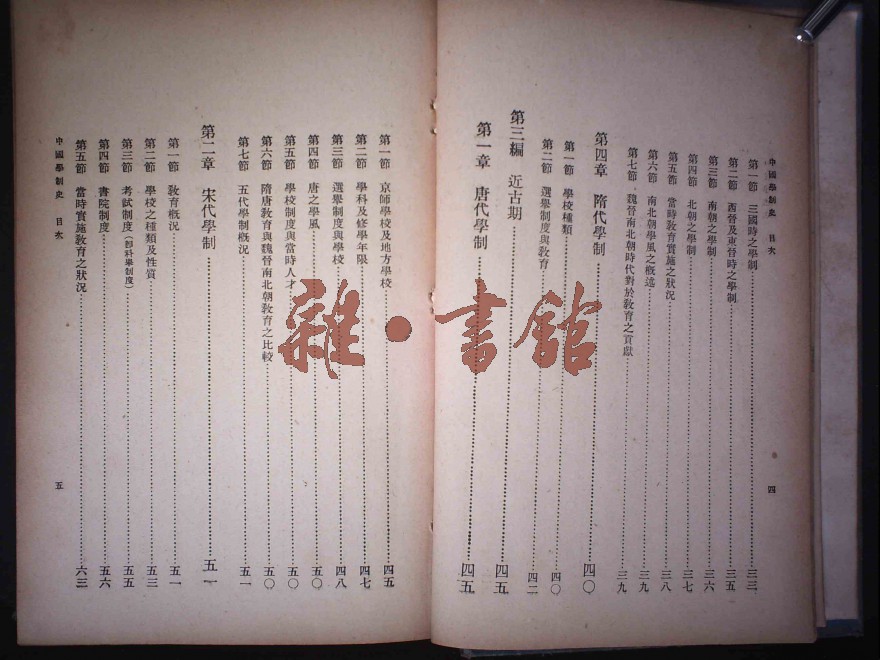 中國學制史 目次
四
第一節 三國時之學制 三三
第二節 西晉及東晉時之學制 三五
第三節 南朝之學制 三六
第四節 北朝之學制 三七
第五節 當時教育實施之狀況 三八
第六節 南北朝學風之概述 三九
第七節 魏晉南北朝時代對於教育之貢獻 三九
第四章 隋代學制 四〇
第一節 學校種類 四〇
第二節 選舉制度與教育 四二
第三編 近古期 四五
第一章 唐代學制 四五
第一節 京師學校及地方學校 四五
第二節 學科及修學年限 四七
第三節 選舉制度與學校 四八
第四節 唐之學風 五〇
第五節 學校制度與當時人才 五〇
第六節 隋唐教育與魏晉南北朝教育之比較 五〇
第七節 五代學制概況 五一
第二章 宋代學制 五一
第一節 教育概況 五一
第二節 學校之種類及性質 五三
第三節 考試制度(即科舉制度) 五五
第四節 書院制度 五六
第五節 當時實施教育之狀況 六三
中國學制史 目次
五
雜·書館